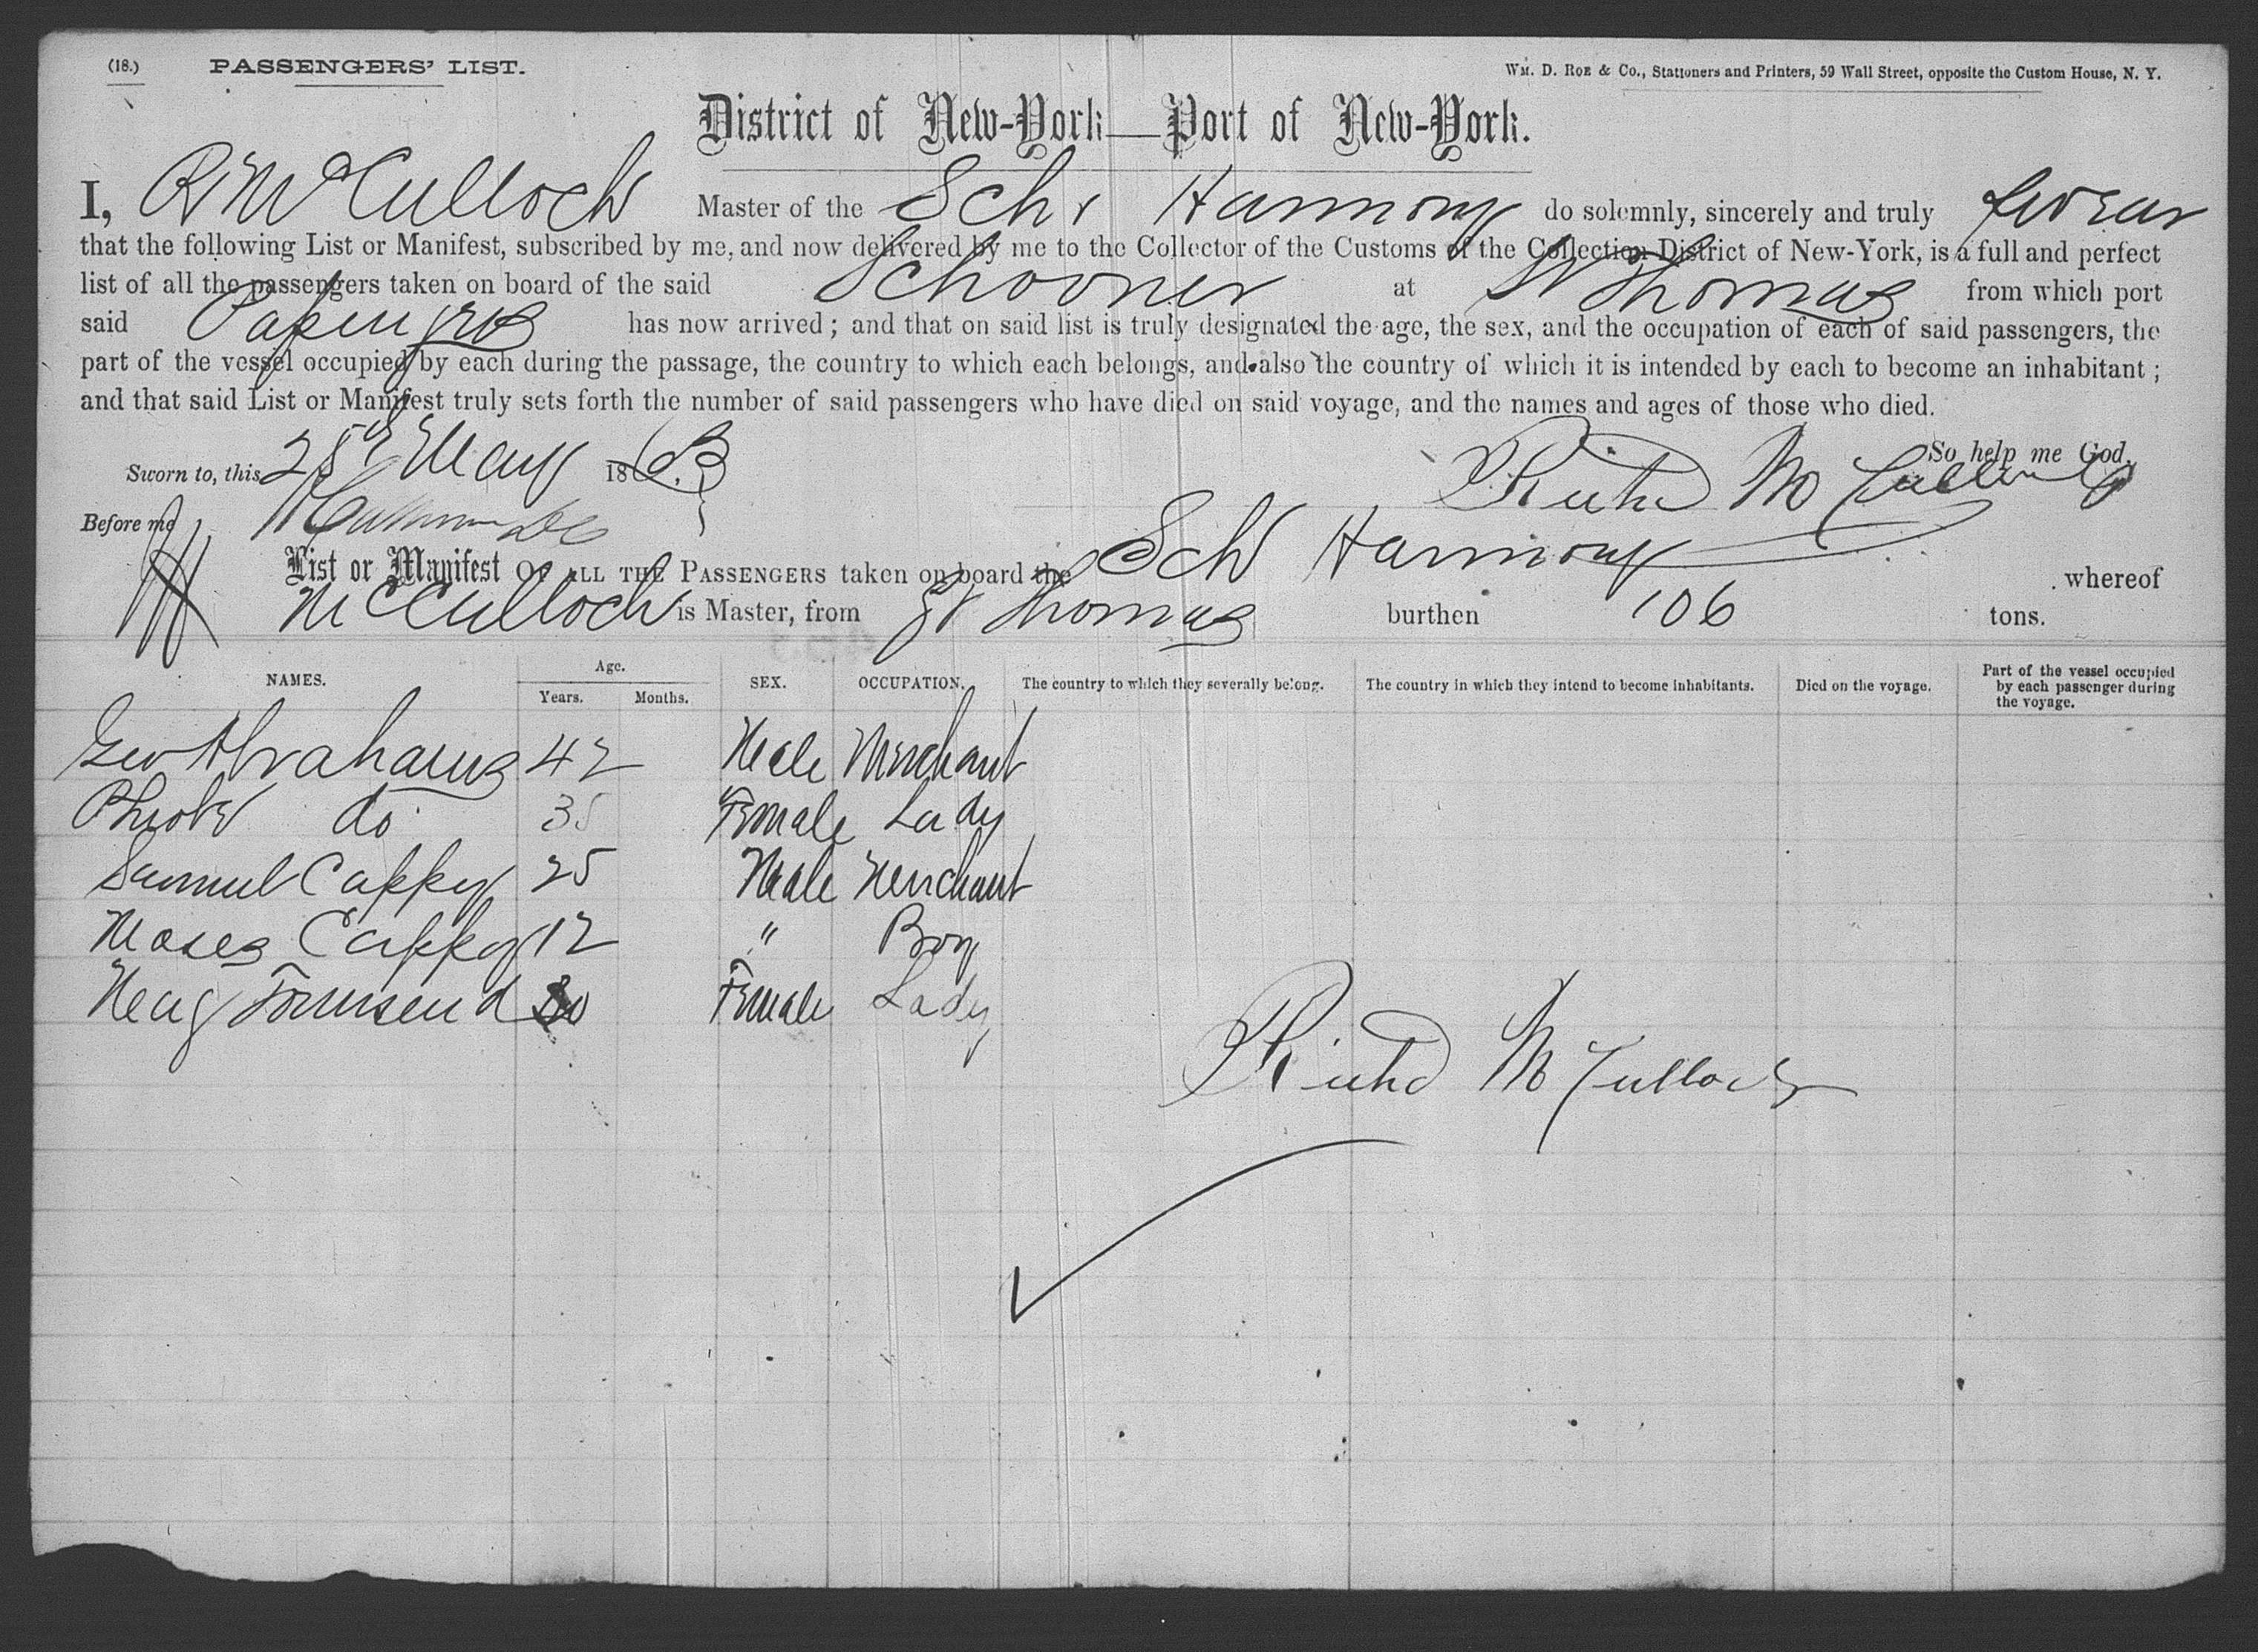 (18.) PASSENGERS' LIST. WM. D. ROE & CO., Stationers and Printers, 59 Wall Street, opposite the Custom House, N. Y.
District of New-York—Port of New-York.
I, R McCulloch Master of the Schr Harmony do solemnly, sincerely and truly swear
that the following List or Manifest, subscribed by me, and now delivered by me to the Collector of the Customs of the Collection District of New-York, is a full and perfect
list of all the passengers taken on board of the said Schooner at St Thomas from which port
said has now arrived; and that on said list is truly designated the age, the sex, and the occupation of each of said passengers, the
part of the vessel occupied by each during the passage, the country to which each belongs, and also the country of which it is intended by each to become an inhabitant;
and that said List or Manifest truly sets forth the number of said passengers who have died on said voyage, and the names and ages of those who died.
So help me God.
Sworn to, this 25 May 186 Richd McCulloch
Before me
List or Manifest OF ALL THE PASSENGERS taken on board the Schr Harmony whereof
McCulloch is Master, from St Thomas burthen 106 tons.
NAMES. Age. Years. Months. SEX. OCCUPATION. The country to which they severally belong. The country in which they intend to become inhabitants. Died on the voyage. Part of the vessel occupied by each passenger during the voyage.
Geo Abrahams 42 Male Merchant
do 35 Female Lady
Samuel Cappey 25 Male Merchant
Moses Cappey 12 " Boy
Townsend Female Lady
Richd McCulloch